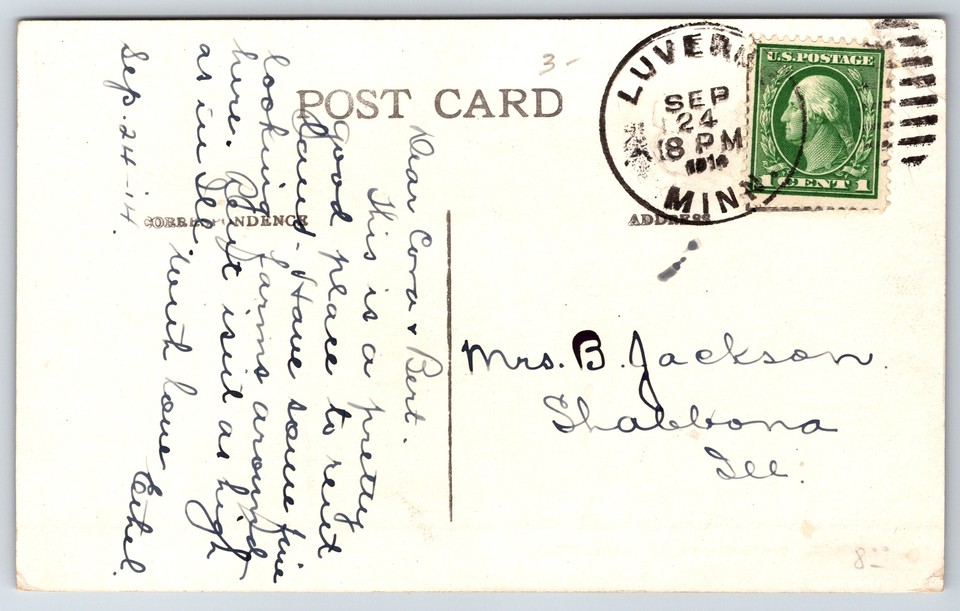 POST CARD
3-
LUVERN
SEP
24
8 PM
1914
MINN
U.S. POSTAGE
1 CENT 1
CORRESPONDENCE
ADDRESS
Dear Cora & Bert.
This is a pretty
good place to rent
land. Have some fine
looking farms around
here. Rent isnt as high
as in Ill. With love Ethel.
Sep. 24-14.
Mrs. B. Jackson.
Shabbona
Ill.
8-